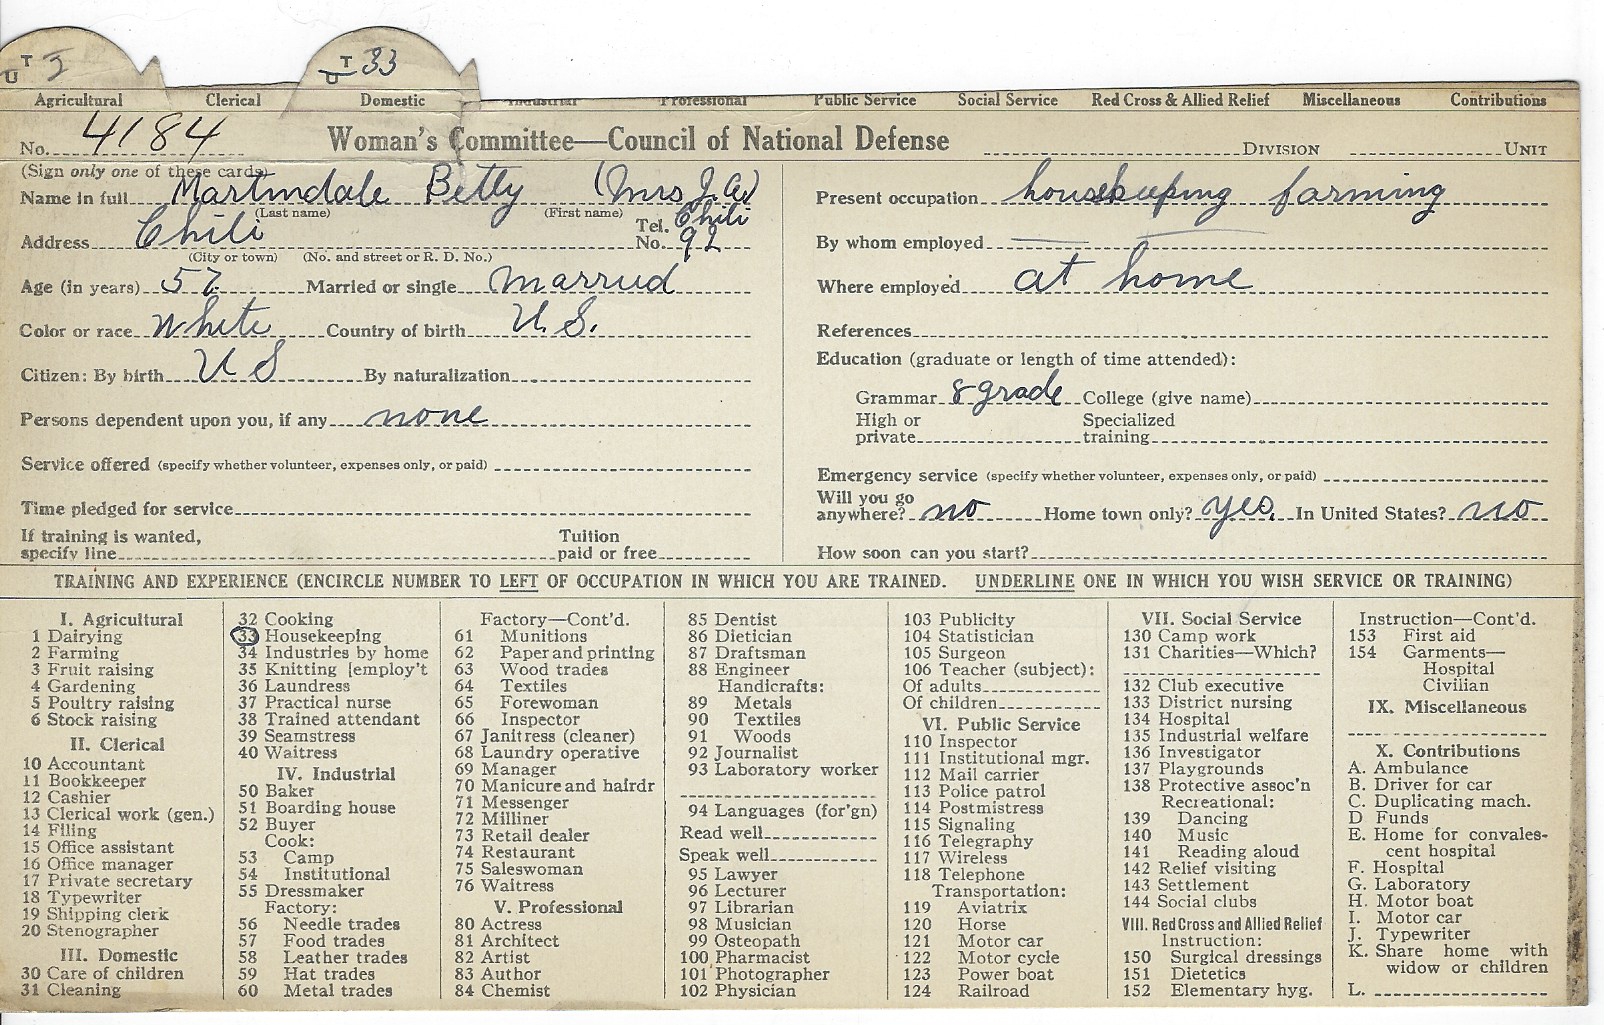 T U 2 T U 33
Agricultural Clerical Domestic Industrial Professional Public Service Social Service Red Cross & Allied Relief Miscellaneous Contributions
No. 4184 Woman's Committee—Council of National Defense DIVISION UNIT
(Sign only one of these cards)
Name in full Martindale Betty (Mrs J. A.)
(Last name) (First name)
Address Chili Tel. No. Chili 92
(City or town) (No. and street or R. D. No.)
Age (in years) 57 Married or single married
Color or race White Country of birth U. S.
Citizen: By birth U S By naturalization
Persons dependent upon you, if any none
Service offered (specify whether volunteer, expenses only, or paid)
Time pledged for service
If training is wanted, specify line Tuition paid or free
Present occupation housekeeping farming
By whom employed
Where employed at home
References
Education (graduate or length of time attended):
Grammar 8 grade College (give name)
High or private Specialized training
Emergency service (specify whether volunteer, expenses only, or paid)
Will you go anywhere? no Home town only? yes. In United States? no
How soon can you start?
TRAINING AND EXPERIENCE (ENCIRCLE NUMBER TO LEFT OF OCCUPATION IN WHICH YOU ARE TRAINED. UNDERLINE ONE IN WHICH YOU WISH SERVICE OR TRAINING)
I. Agricultural
1 Dairying
2 Farming
3 Fruit raising
4 Gardening
5 Poultry raising
6 Stock raising
II. Clerical
10 Accountant
11 Bookkeeper
12 Cashier
13 Clerical work (gen.)
14 Filing
15 Office assistant
16 Office manager
17 Private secretary
18 Typewriter
19 Shipping clerk
20 Stenographer
III. Domestic
30 Care of children
31 Cleaning
32 Cooking
33 Housekeeping
34 Industries by home
35 Knitting [employ't
36 Laundress
37 Practical nurse
38 Trained attendant
39 Seamstress
40 Waitress
IV. Industrial
50 Baker
51 Boarding house
52 Buyer
Cook:
53 Camp
54 Institutional
55 Dressmaker
Factory:
56 Needle trades
57 Food trades
58 Leather trades
59 Hat trades
60 Metal trades
Factory—Cont'd.
61 Munitions
62 Paper and printing
63 Wood trades
64 Textiles
65 Forewoman
66 Inspector
67 Janitress (cleaner)
68 Laundry operative
69 Manager
70 Manicure and hairdr
71 Messenger
72 Milliner
73 Retail dealer
74 Restaurant
75 Saleswoman
76 Waitress
V. Professional
80 Actress
81 Architect
82 Artist
83 Author
84 Chemist
85 Dentist
86 Dietician
87 Draftsman
88 Engineer
Handicrafts:
89 Metals
90 Textiles
91 Woods
92 Journalist
93 Laboratory worker
94 Languages (for'gn)
Read well
Speak well
95 Lawyer
96 Lecturer
97 Librarian
98 Musician
99 Osteopath
100 Pharmacist
101 Photographer
102 Physician
103 Publicity
104 Statistician
105 Surgeon
106 Teacher (subject):
Of adults
Of children
VI. Public Service
110 Inspector
111 Institutional mgr.
112 Mail carrier
113 Police patrol
114 Postmistress
115 Signaling
116 Telegraphy
117 Wireless
118 Telephone
Transportation:
119 Aviatrix
120 Horse
121 Motor car
122 Motor cycle
123 Power boat
124 Railroad
VII. Social Service
130 Camp work
131 Charities—Which?
132 Club executive
133 District nursing
134 Hospital
135 Industrial welfare
136 Investigator
137 Playgrounds
138 Protective assoc'n
Recreational:
139 Dancing
140 Music
141 Reading aloud
142 Relief visiting
143 Settlement
144 Social clubs
VIII. Red Cross and Allied Relief
Instruction:
150 Surgical dressings
151 Dietetics
152 Elementary hyg.
Instruction—Cont'd.
153 First aid
154 Garments—
Hospital
Civilian
IX. Miscellaneous
X. Contributions
A. Ambulance
B. Driver for car
C. Duplicating mach.
D Funds
E. Home for convales-
cent hospital
F. Hospital
G. Laboratory
H. Motor boat
I. Motor car
J. Typewriter
K. Share home with
widow or children
L.